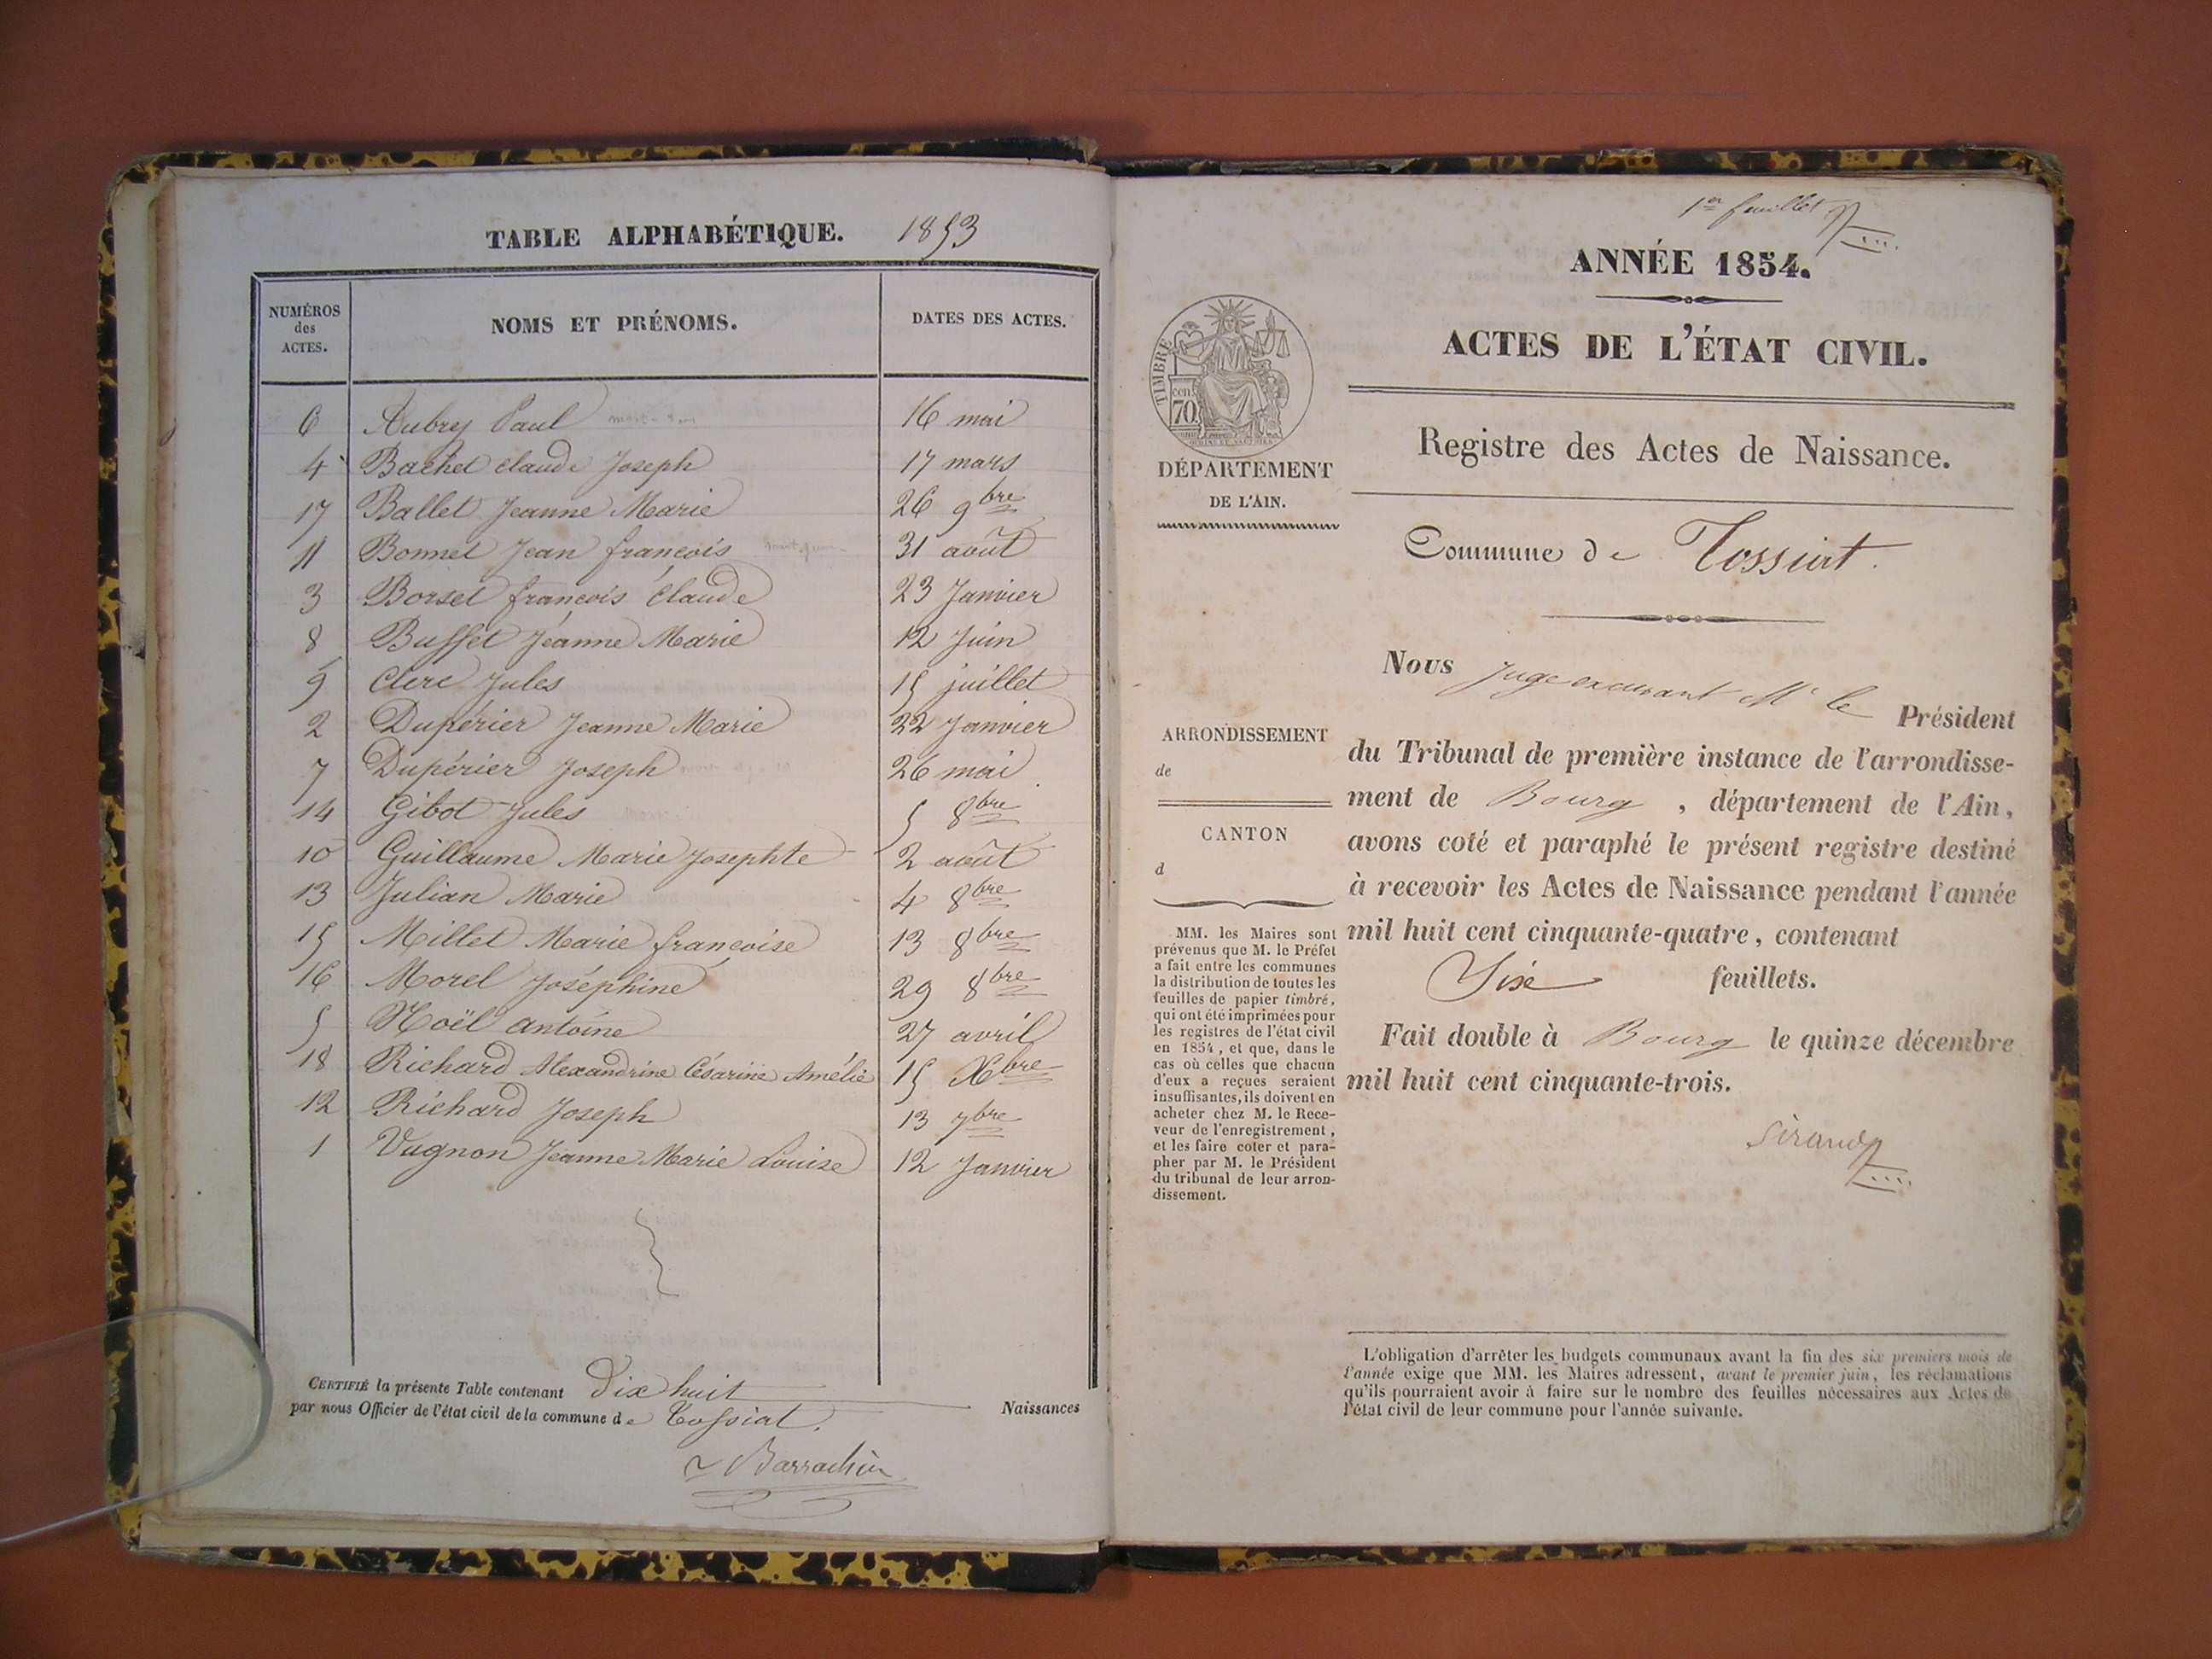 TABLE ALPHABÉTIQUE. 1853
NUMÉROS des ACTES. NOMS ET PRÉNOMS. DATES DES ACTES.
6 Aubry Paul 16 mai
4 Bachet Claude Joseph 17 mars
17 Ballet Jeanne Marie 26 9bre
11 Bonnet Jean françois 31 août
3 Borset françois Claude 23 Janvier
8 Buffet Jeanne Marie 12 Juin
9 Clerc Jules 15 juillet
2 Dupérier Jeanne Marie 22 Janvier
7 Dupérier Joseph 26 mai
14 Gibot Jules 5 8bre
10 Guillaume Marie Josephte 2 août
13 Julian Marie 4 8bre
15 Millet Marie françoise 13 8bre
16 Morel Joséphine 29 8bre
5 Noël antoine 27 avril
18 Richard Alexandrine Césarine Amélie 15 Xbre
12 Richard Joseph 13 7bre
1 Vugnon Jeanne Marie Louise 12 Janvier
CERTIFIÉ la présente Table contenant Dix huit Naissances
par nous Officier de l'état civil de la commune de Tossiat.
Barrachin
1er feuillet
ANNÉE 1854.
ACTES DE L'ÉTAT CIVIL.
TIMBRE
cen
70
DÉPARTEMENT
DE L'AIN.
Registre des Actes de Naissance.
Commune de Tossiat.
Nous Juge excusant Mr le Président
du Tribunal de première instance de l'arrondisse-
ment de Bourg, département de l'Ain,
avons coté et paraphé le présent registre destiné
à recevoir les Actes de Naissance pendant l'année
mil huit cent cinquante-quatre, contenant
Six feuillets.
Fait double à Bourg le quinze décembre
mil huit cent cinquante-trois.
Sirand
ARRONDISSEMENT
de
CANTON
d
MM. les Maires sont
prévenus que M. le Préfet
a fait entre les communes
la distribution de toutes les
feuilles de papier timbré,
qui ont été imprimées pour
les registres de l'état civil
en 1854, et que, dans le
cas où celles que chacun
d'eux a reçues seraient
insuffisantes, ils doivent en
acheter chez M. le Rece-
veur de l'enregistrement,
et les faire coter et para-
pher par M. le Président
du tribunal de leur arron-
dissement.
L'obligation d'arrêter les budgets communaux avant la fin des six premiers mois de
l'année exige que MM. les Maires adressent, avant le premier juin, les réclamations
qu'ils pourraient avoir à faire sur le nombre des feuilles nécessaires aux Actes de
l'état civil de leur commune pour l'année suivante.